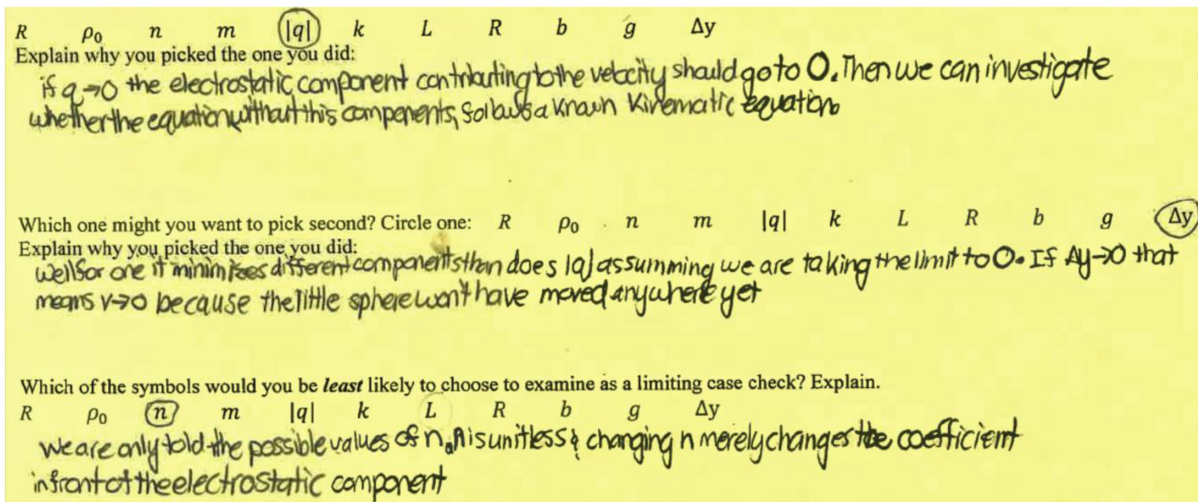 R ρ₀ n m |q| k L R b g Δy
Explain why you picked the one you did:
if q→0 the electrostatic component contributing to the velocity should go to 0. Then we can investigate
whether the equation, without this components, follows a known kinematic equation.
Which one might you want to pick second? Circle one: R ρ₀ n m |q| k L R b g Δy
Explain why you picked the one you did:
well for one it minimizes different components than does |q| assumming we are taking the limit to 0. If Δy→0 that
means v→0 because the little sphere won't have moved anywhere yet
Which of the symbols would you be least likely to choose to examine as a limiting case check? Explain.
R ρ₀ n m |q| k L R b g Δy
we are only told the possible values of n. n is unitless & changing n merely changes the coefficient
in front of the electrostatic component